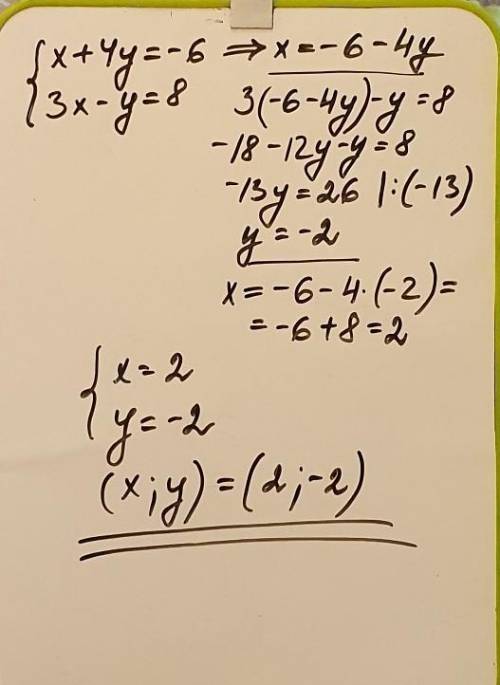 { x + 4y = -6 ⇒ x = -6 - 4y
{ 3x - y = 8   3(-6-4y)-y = 8
-18-12y-y = 8
-13y = 26 |:(-13)
y = -2
x = -6 - 4·(-2) =
= -6 + 8 = 2
{ x = 2
{ y = -2
(x;y) = (2;-2)